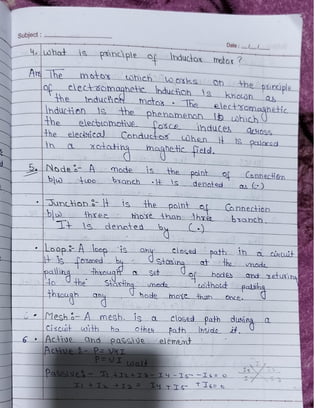 Subject :
Date :
4. What is principle of Inductor motor ?
Ans The motor which works on the principle
of electromagnetic Induction is known as
the Induction motor . The electromagnetic
Induction is the phenomenon in which
the electromotive force induces across
the electrical Conductor when it is placed
in a rotating magnetic field.
5. Node :- A node is the point of Connection
b/w two branch . It is denoted as (.)
Junction :- It is the point of Connection
b/w three more than three branch.
It is denoted by (.)
Loop :- A loop is any closed path in a circuit
It is formed by staring at the node
palling through a set of nodes and returing
to the starting node without passing
through any node more than once.
Mesh :- A mesh is a closed path during a
Circuit with no other path inside it.
6 Active and passive element
Active :- P = VxI
P = VI watt
Passive :- I1 + I2 + I3 - I4 - I5 - I6 = 0
I1 + I2 + I3 = I4 + I5 + I6 = 0